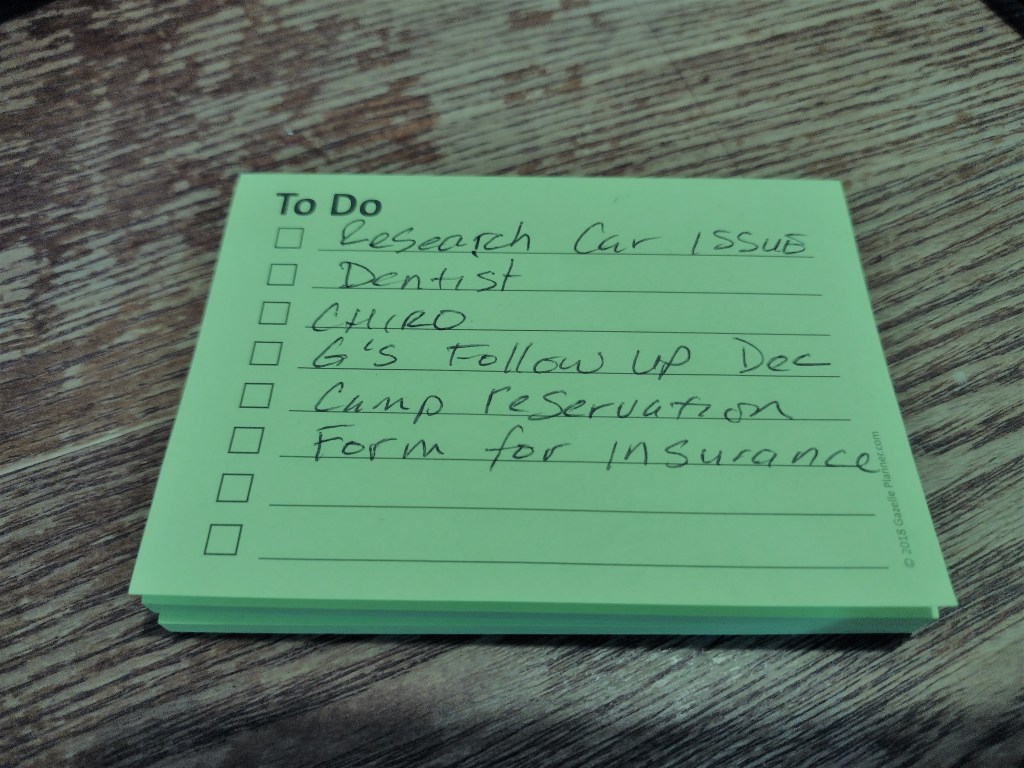 To Do
Research Car ISSUE
Dentist
CHIRO
G's Follow up Dec
Camp reservation
Form for Insurance
© 2018 Gazelle Planner.com